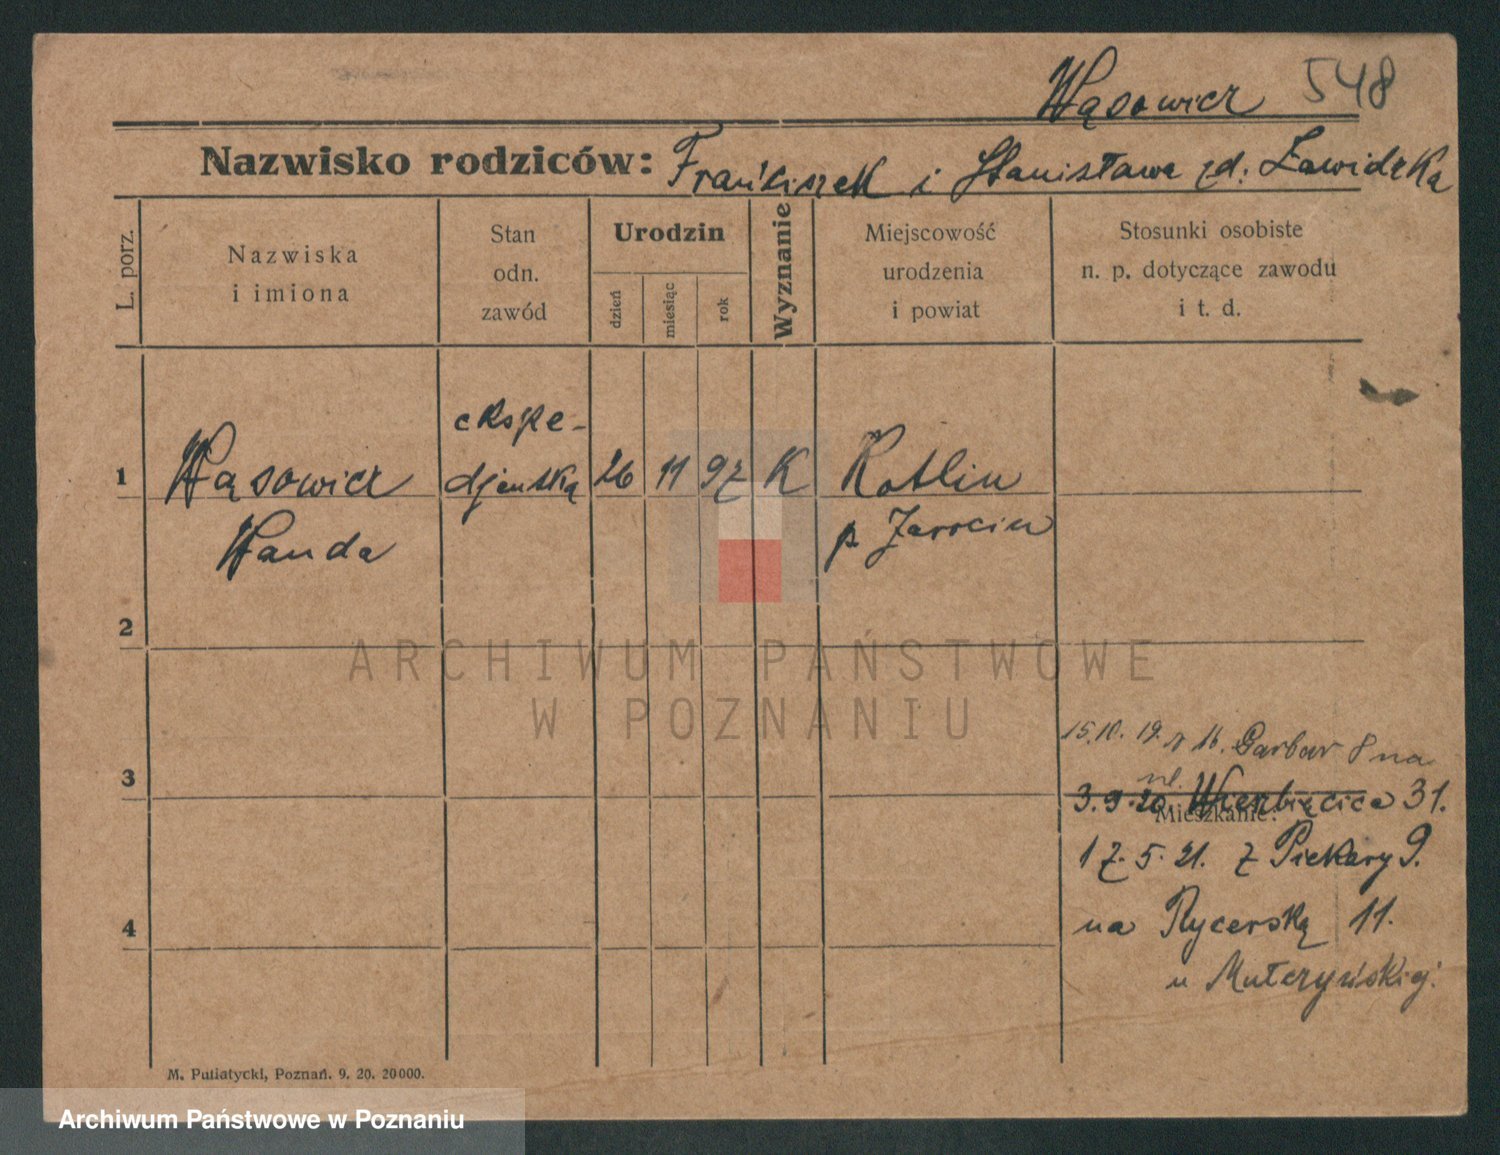 Wąsowicz 548
Nazwisko rodziców: Franciszek i Stanisława zd. Zawidzka
L. porz.
Nazwiska
i imiona
Stan
odn.
zawód
Urodzin
dzień
miesiąc
rok
Wyznanie
Miejscowość
urodzenia
i powiat
Stosunki osobiste
n. p. dotyczące zawodu
i t. d.
ekspe-
1 Wąsowicz djentka 26 11 97 K Kotlin
Wanda p. Jarocin
2
ARCHIWUM PAŃSTWOWE
W POZNANIU
15.10.19. 16. Garbar 8 na
3
3.9.20. Wierzbięcice 31.
Mieszkanie:
17.5.21. z Piekary 9.
4
na Rycerską 11.
u
M. Putiatycki, Poznań. 9. 20. 20000.
Archiwum Państwowe w Poznaniu